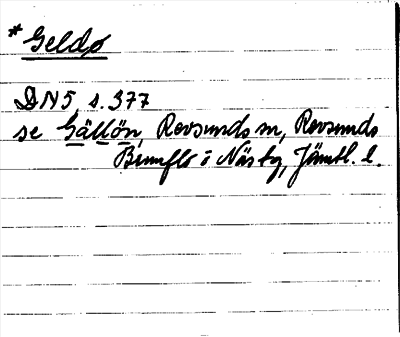 *Geldø
DN5, s. 377
se Gällön, Revsunds sn, Revsunds
Brunflo i Näs tg, Jämtl. l.